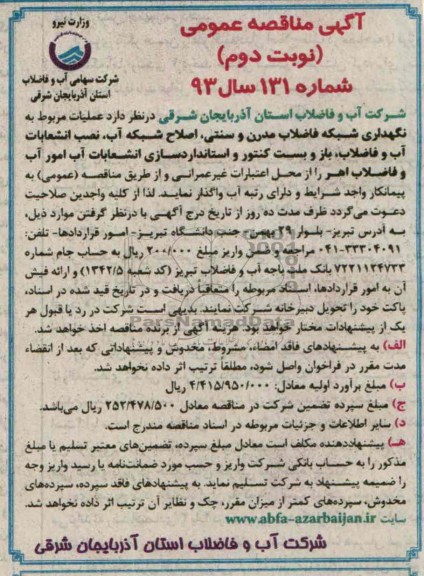 آگهی مناقصه عمومی
(نوبت دوم)
شماره ۱۳۱ سال ۹۳
وزارت نیرو
شرکت سهامی آب و فاضلاب
استان آذربایجان شرقی
شرکت آب و فاضلاب استان آذربایجان شرقی درنظر دارد عملیات مربوط به
نگهداری شبکه فاضلاب مدرن و سنتی، اصلاح شبکه آب، نصب انشعابات
آب و فاضلاب، باز و بست کنتور و استانداردسازی انشعابات آب امور آب
و فاضلاب اهر را از محل اعتبارات غیرعمرانی و از طریق مناقصه (عمومی) به
پیمانکار واجد شرایط و دارای رتبه آب واگذار نماید. لذا از کلیه واجدین صلاحیت
دعوت می‌گردد ظرف مدت ده روز از تاریخ درج آگهی با درنظر گرفتن موارد ذیل،
به آدرس تبریز- بلوار ۲۹ بهمن- جنب دانشگاه تبریز- امور قراردادها- تلفن:
۰۴۱-۳۳۳۰۴۰۹۱ مراجعه و ضمن واریز مبلغ ۲۰۰/۰۰۰ ریال به حساب جام شماره
۷۲۲۱۱۲۴۷۳۳ بانک ملت باجه آب و فاضلاب تبریز (کد شعبه ۱۳۴۲/۵) و ارائه فیش
آن به امور قراردادها، اسناد مربوطه را متعاقباً دریافت و در تاریخ قید شده در اسناد،
پاکت خود را تحویل دبیرخانه شرکت نمایند. بدیهی است شرکت در رد یا قبول هر
یک از پیشنهادات مختار خواهد بود. هزینه آگهی از برنده مناقصه اخذ خواهد شد.
الف) به پیشنهادهای فاقد امضاء، مشروط، مخدوش و پیشنهاداتی که بعد از انقضاء
مدت مقرر در فراخوان واصل شود، مطلقاً ترتیب اثر داده نخواهد شد.
ب) مبلغ برآورد اولیه معادل: ۴/۴۱۵/۹۵۰/۰۰۰ ریال
ج) مبلغ سپرده تضمین شرکت در مناقصه معادل ۲۵۲/۴۷۸/۵۰۰ ریال می‌باشد.
د) سایر اطلاعات و جزئیات مربوطه در اسناد مناقصه مندرج است.
هـ) پیشنهاددهنده مکلف است معادل مبلغ سپرده، تضمین‌های معتبر تسلیم یا مبلغ
مذکور را به حساب بانکی شرکت واریز و حسب مورد ضمانت‌نامه یا رسید واریز وجه
را ضمیمه پیشنهاد به شرکت تسلیم نماید. به پیشنهادهای فاقد سپرده، سپرده‌های
مخدوش، سپرده‌های کمتر از میزان مقرر، چک و نظایر آن ترتیب اثر داده نخواهد شد.
سایت www.abfa-azarbaijan.ir
شرکت آب و فاضلاب استان آذربایجان شرقی